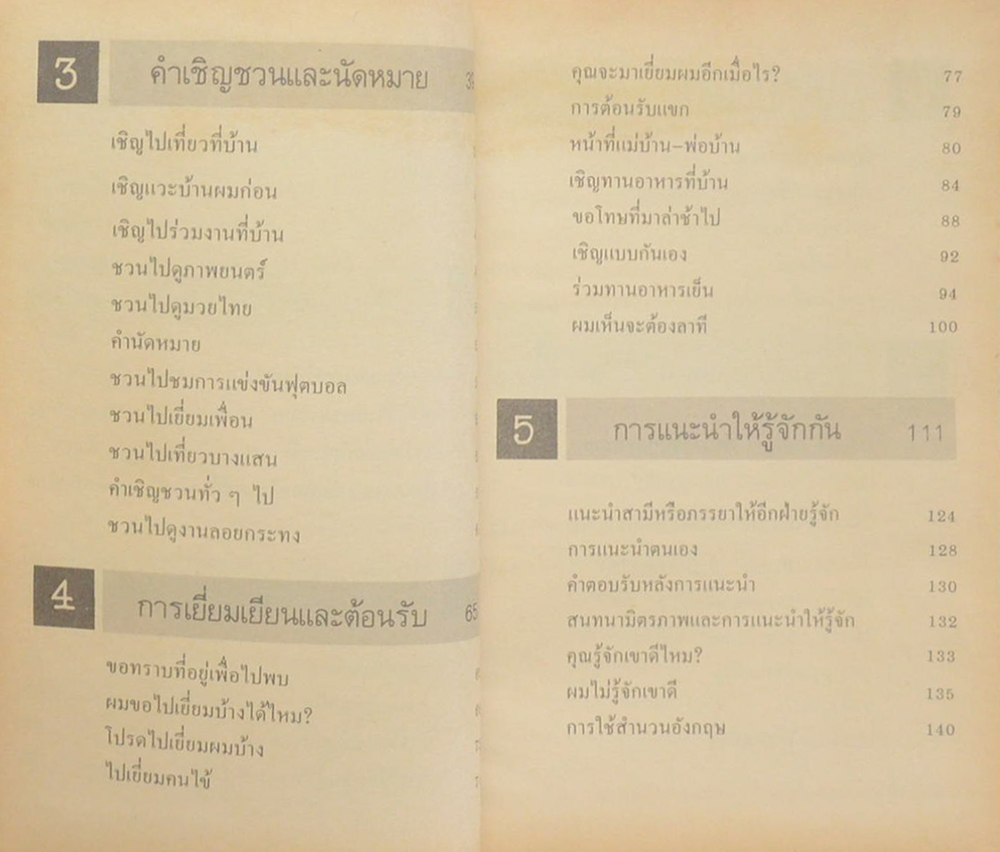 3 คำเชิญชวนและนัดหมาย
เชิญไปเที่ยวที่บ้าน
เชิญแวะบ้านผมก่อน
เชิญไปร่วมงานที่บ้าน
ชวนไปดูภาพยนตร์
ชวนไปดูมวยไทย
คำนัดหมาย
ชวนไปชมการแข่งขันฟุตบอล
ชวนไปเยี่ยมเพื่อน
ชวนไปเที่ยวบางแสน
คำเชิญชวนทั่ว ๆ ไป
ชวนไปดูงานลอยกระทง
4 การเยี่ยมเยียนและต้อนรับ 65
ขอทราบที่อยู่เพื่อไปพบ
ผมขอไปเยี่ยมบ้างได้ไหม?
โปรดไปเยี่ยมผมบ้าง
ไปเยี่ยมคนไข้
คุณจะมาเยี่ยมผมอีกเมื่อไร? 77
การต้อนรับแขก 79
หน้าที่แม่บ้าน-พ่อบ้าน 80
เชิญทานอาหารที่บ้าน 84
ขอโทษที่มาล่าช้าไป 88
เชิญแบบกันเอง 92
ร่วมทานอาหารเย็น 94
ผมเห็นจะต้องลาที 100
5 การแนะนำให้รู้จักกัน 111
แนะนำสามีหรือภรรยาให้อีกฝ่ายรู้จัก 124
การแนะนำตนเอง 128
คำตอบรับหลังการแนะนำ 130
สนทนามิตรภาพและการแนะนำให้รู้จัก 132
คุณรู้จักเขาดีไหม? 133
ผมไม่รู้จักเขาดี 135
การใช้สำนวนอังกฤษ 140